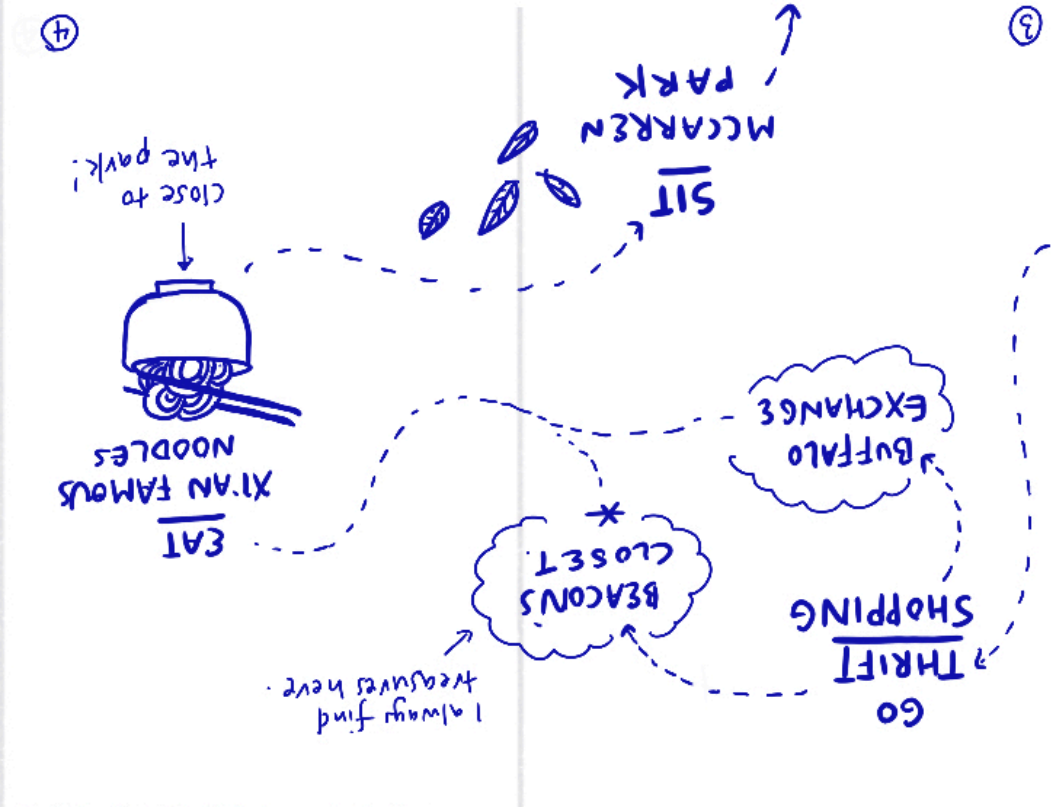 GO
THRIFT
SHOPPING
BUFFALO
EXCHANGE
I always find
treasures here.
BEACONS
CLOSET
EAT
XI'AN FAMOUS
NOODLES
close to
the park!
SIT
MCCARREN
PARK
3
4